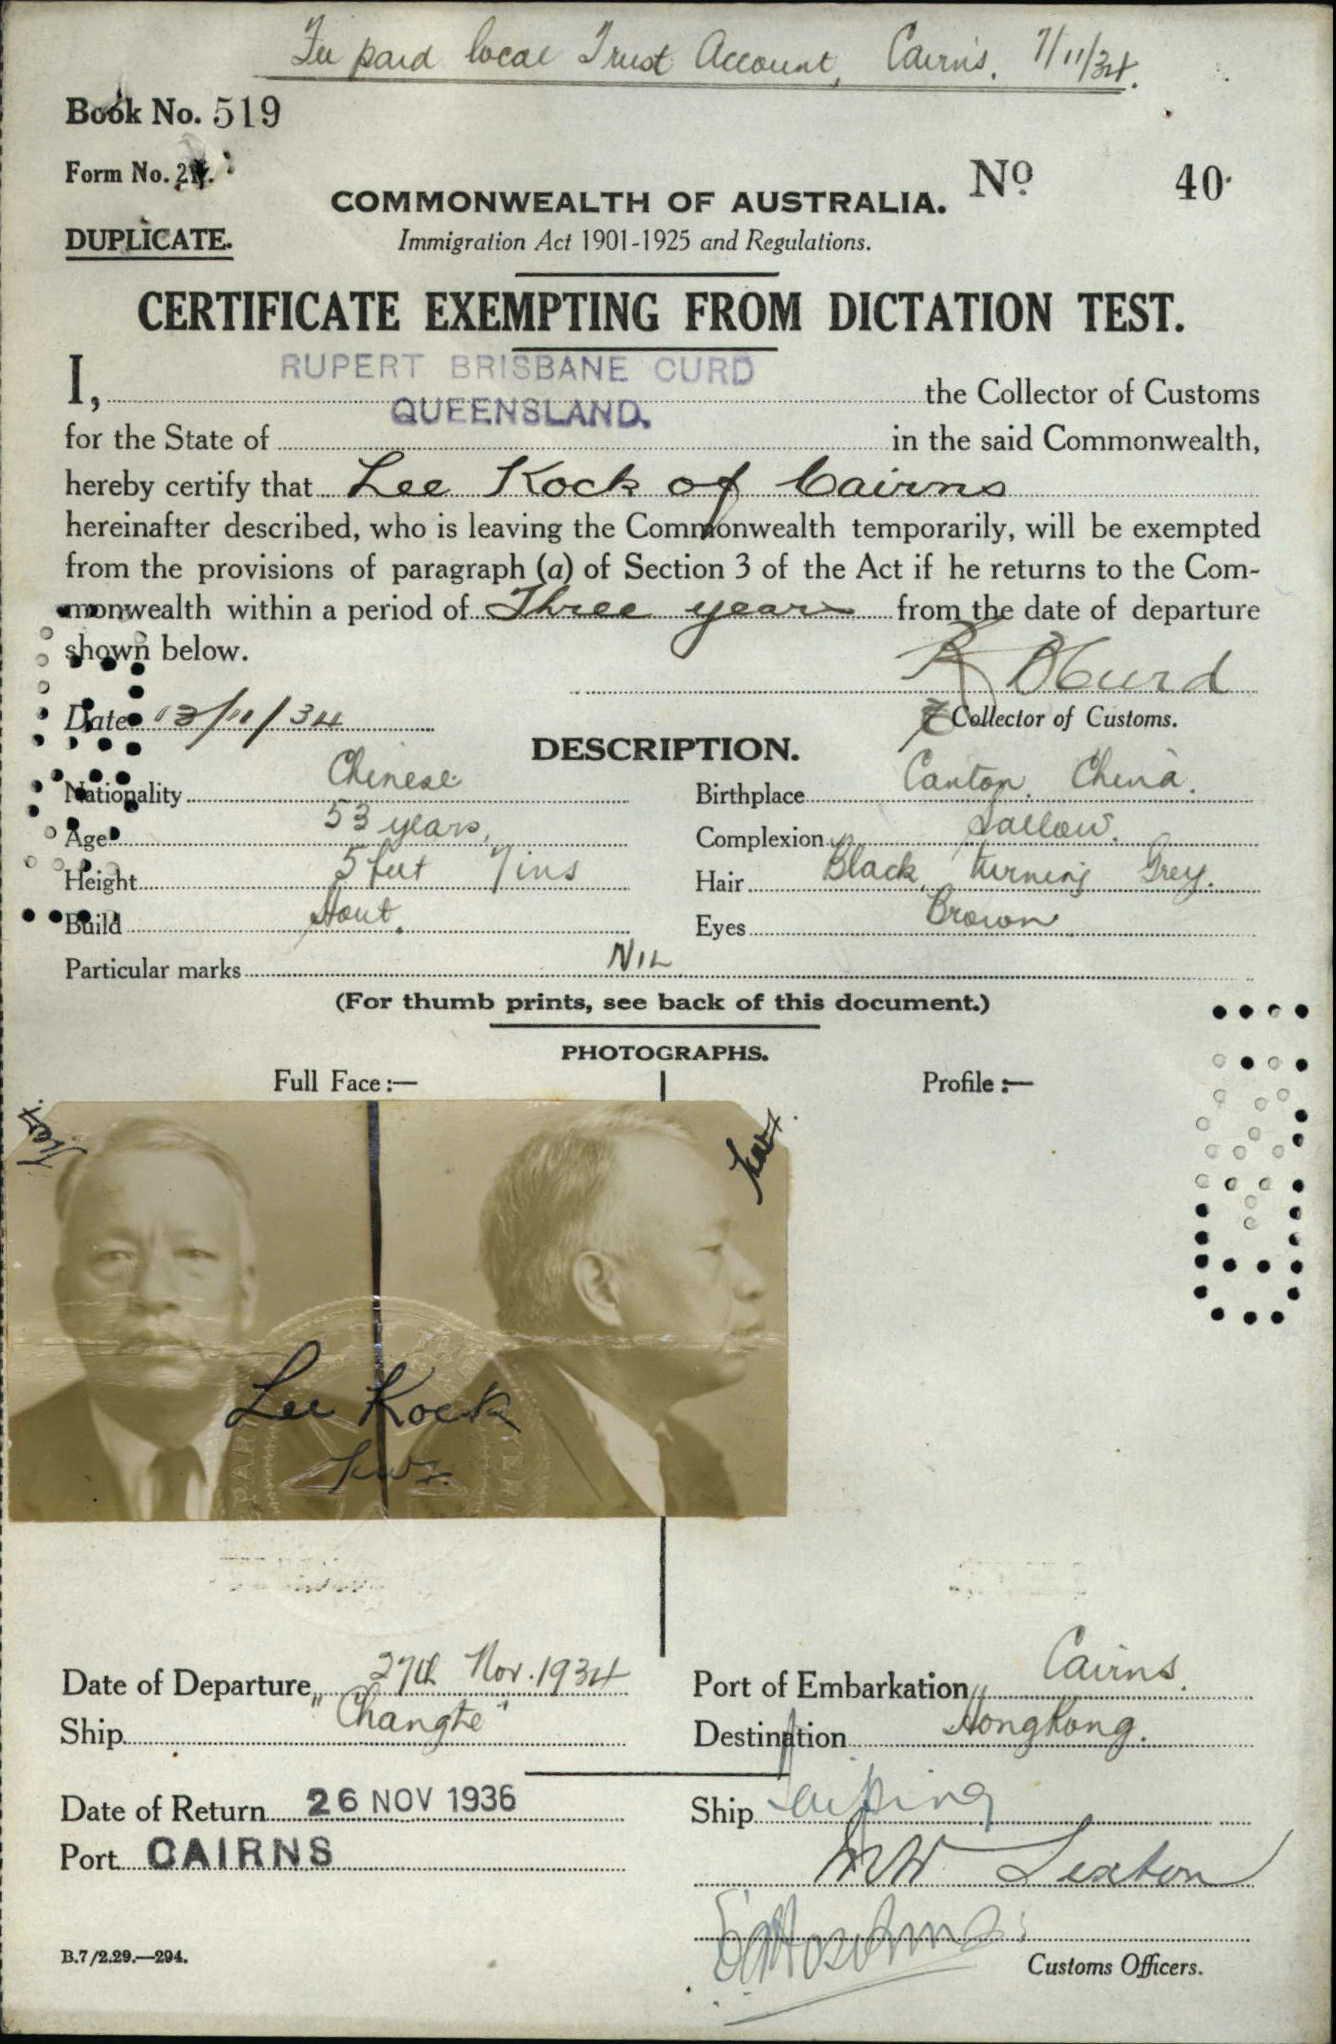 Fee paid local Trust Account, Cairns. 7/11/34.
Book No. 519
Form No. 21.
No 40.
COMMONWEALTH OF AUSTRALIA.
DUPLICATE.
Immigration Act 1901-1925 and Regulations.
CERTIFICATE EXEMPTING FROM DICTATION TEST.
I, RUPERT BRISBANE CURD the Collector of Customs
for the State of QUEENSLAND. in the said Commonwealth,
hereby certify that Lee Kock of Cairns
hereinafter described, who is leaving the Commonwealth temporarily, will be exempted
from the provisions of paragraph (a) of Section 3 of the Act if he returns to the Com-
monwealth within a period of Three years from the date of departure
shown below.
R B Curd
Date 13/11/34
Collector of Customs.
DESCRIPTION.
Nationality Chinese
Birthplace Canton. China.
Age 53 years.
Complexion Sallow.
Height 5 feet 7 ins
Hair Black, turning Grey.
Build Stout.
Eyes Brown
Particular marks NIL
(For thumb prints, see back of this document.)
PHOTOGRAPHS.
Full Face:—
Profile:—
Lee Kock
Date of Departure 27th Nov. 1934
Port of Embarkation Cairns.
Ship "Changte"
Destination Hong Kong.
Date of Return 26 NOV 1936
Ship Taiping
Port CAIRNS
B.7/2.29.—294.
Customs Officers.